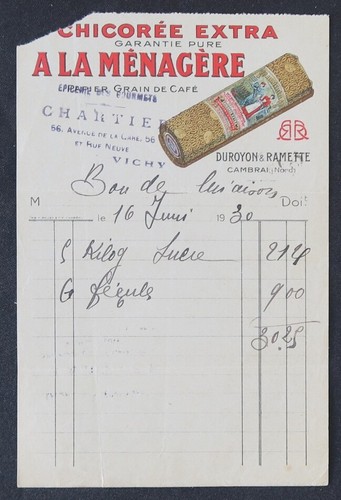 CHICORÉE EXTRA
GARANTIE PURE
A LA MÉNAGÈRE
EPICERIE DES GOURMETS
CHARTIER
56, AVENUE DE LA GARE, 56
ET RUE NEUVE
VICHY
DUROYON & RAMETTE
CAMBRAI (Nord)
Bon de livraison
M Doit
le 16 Juin 1930
5 Kilog Sucre
6 fécule 9.00
30.25